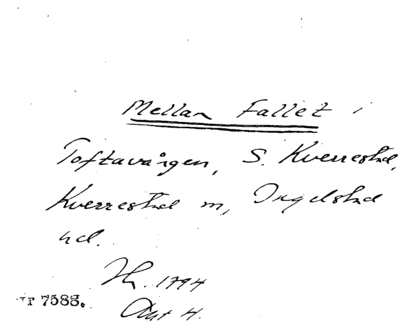 Mellan Fallet i
Toftavången, S. Kverrestad,
Kverrestad m, Ingelstad
hd.
Hr. 1794
Akt 4.
NR 7588.